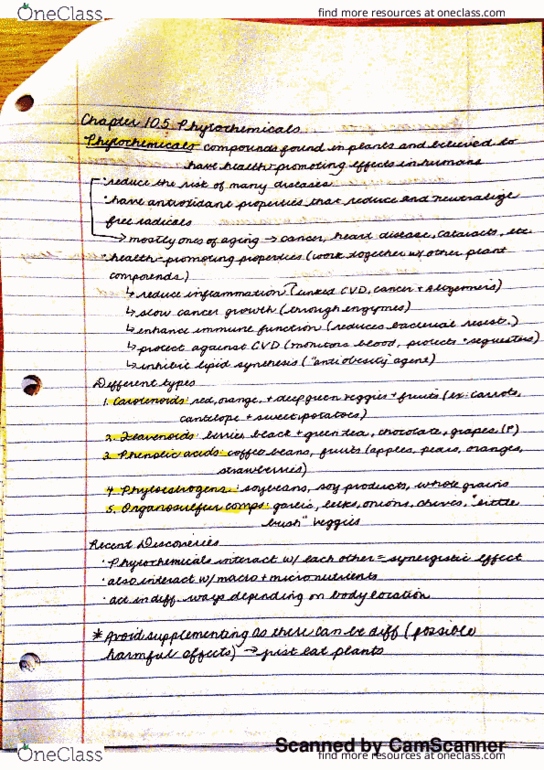 OneClass
find more resources at oneclass.com
Chapter 10.5 Phytochemicals
Phytochemicals: compounds found in plants and believed to
have health-promoting effects in humans
• reduce the risk of many diseases
• have antioxidant properties that reduce and neutralize
free radicals
→ mostly ones of aging → cancer, heart disease, cataracts, etc
• health-promoting properties (work together w/ other plant
compounds)
↳ reduce inflammation (linked CVD, cancer + Alzheimers)
↳ slow cancer growth (through enzymes)
↳ enhance immune function (reduces bacterial resist.)
↳ protect against CVD (monitors blood, protects + sequesters)
↳ inhibit lipid synthesis ("antiobesity" agent)
Different types
1. Carotenoids: red, orange, + deep green veggies + fruits (ex: carrots,
cantelope + sweet potatoes)
2. Flavenoids: berries, black + green tea, chocolate, grapes (P)
3. Phenolic acids: coffee beans, fruits (apples, pears, oranges,
strawberries)
4. Phytoestrogens: soybeans, soy products, whole grains
5. Organosulfur comps: garlic, leeks, onions, chives, "little
bush" veggies
Recent Discoveries
• Phytochemicals interact w/ each other = synergistic effect
• also interact w/ macro + micronutrients
• act in diff. ways depending on body location
* Avoid supplementing as these can be diff (possible
harmful effects) → just eat plants
Scanned by CamScanner
OneClass
find more resources at oneclass.com